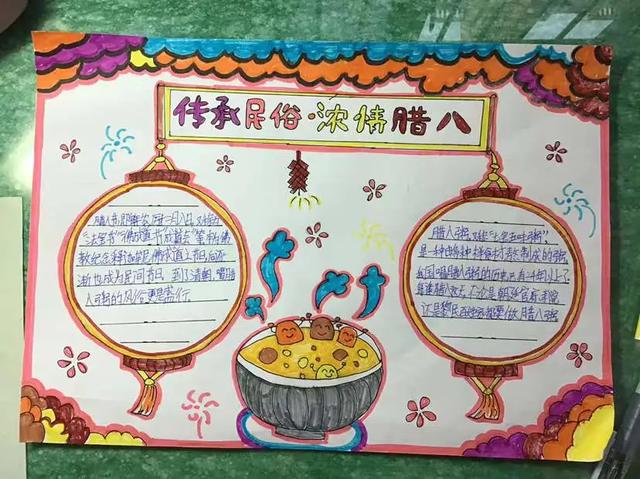 传承民俗·浓情腊八
腊八节,即每农历十二月八日,又称为
"法宝节""佛成道节""成道会"等。本为佛
教纪念释迦牟尼佛成道之节日,后逐
渐也成为民间节日。到了清朝,喝腊
八粥的风俗更是盛行
腊八粥,又称"七宝五味粥",
是一种由多种食材熬制成的粥。
我国喝腊八粥的历史,已有一千多年以上了。
每逢腊八这天,不论是朝廷、官府、寺院
还是黎民百姓家都要做腊八粥